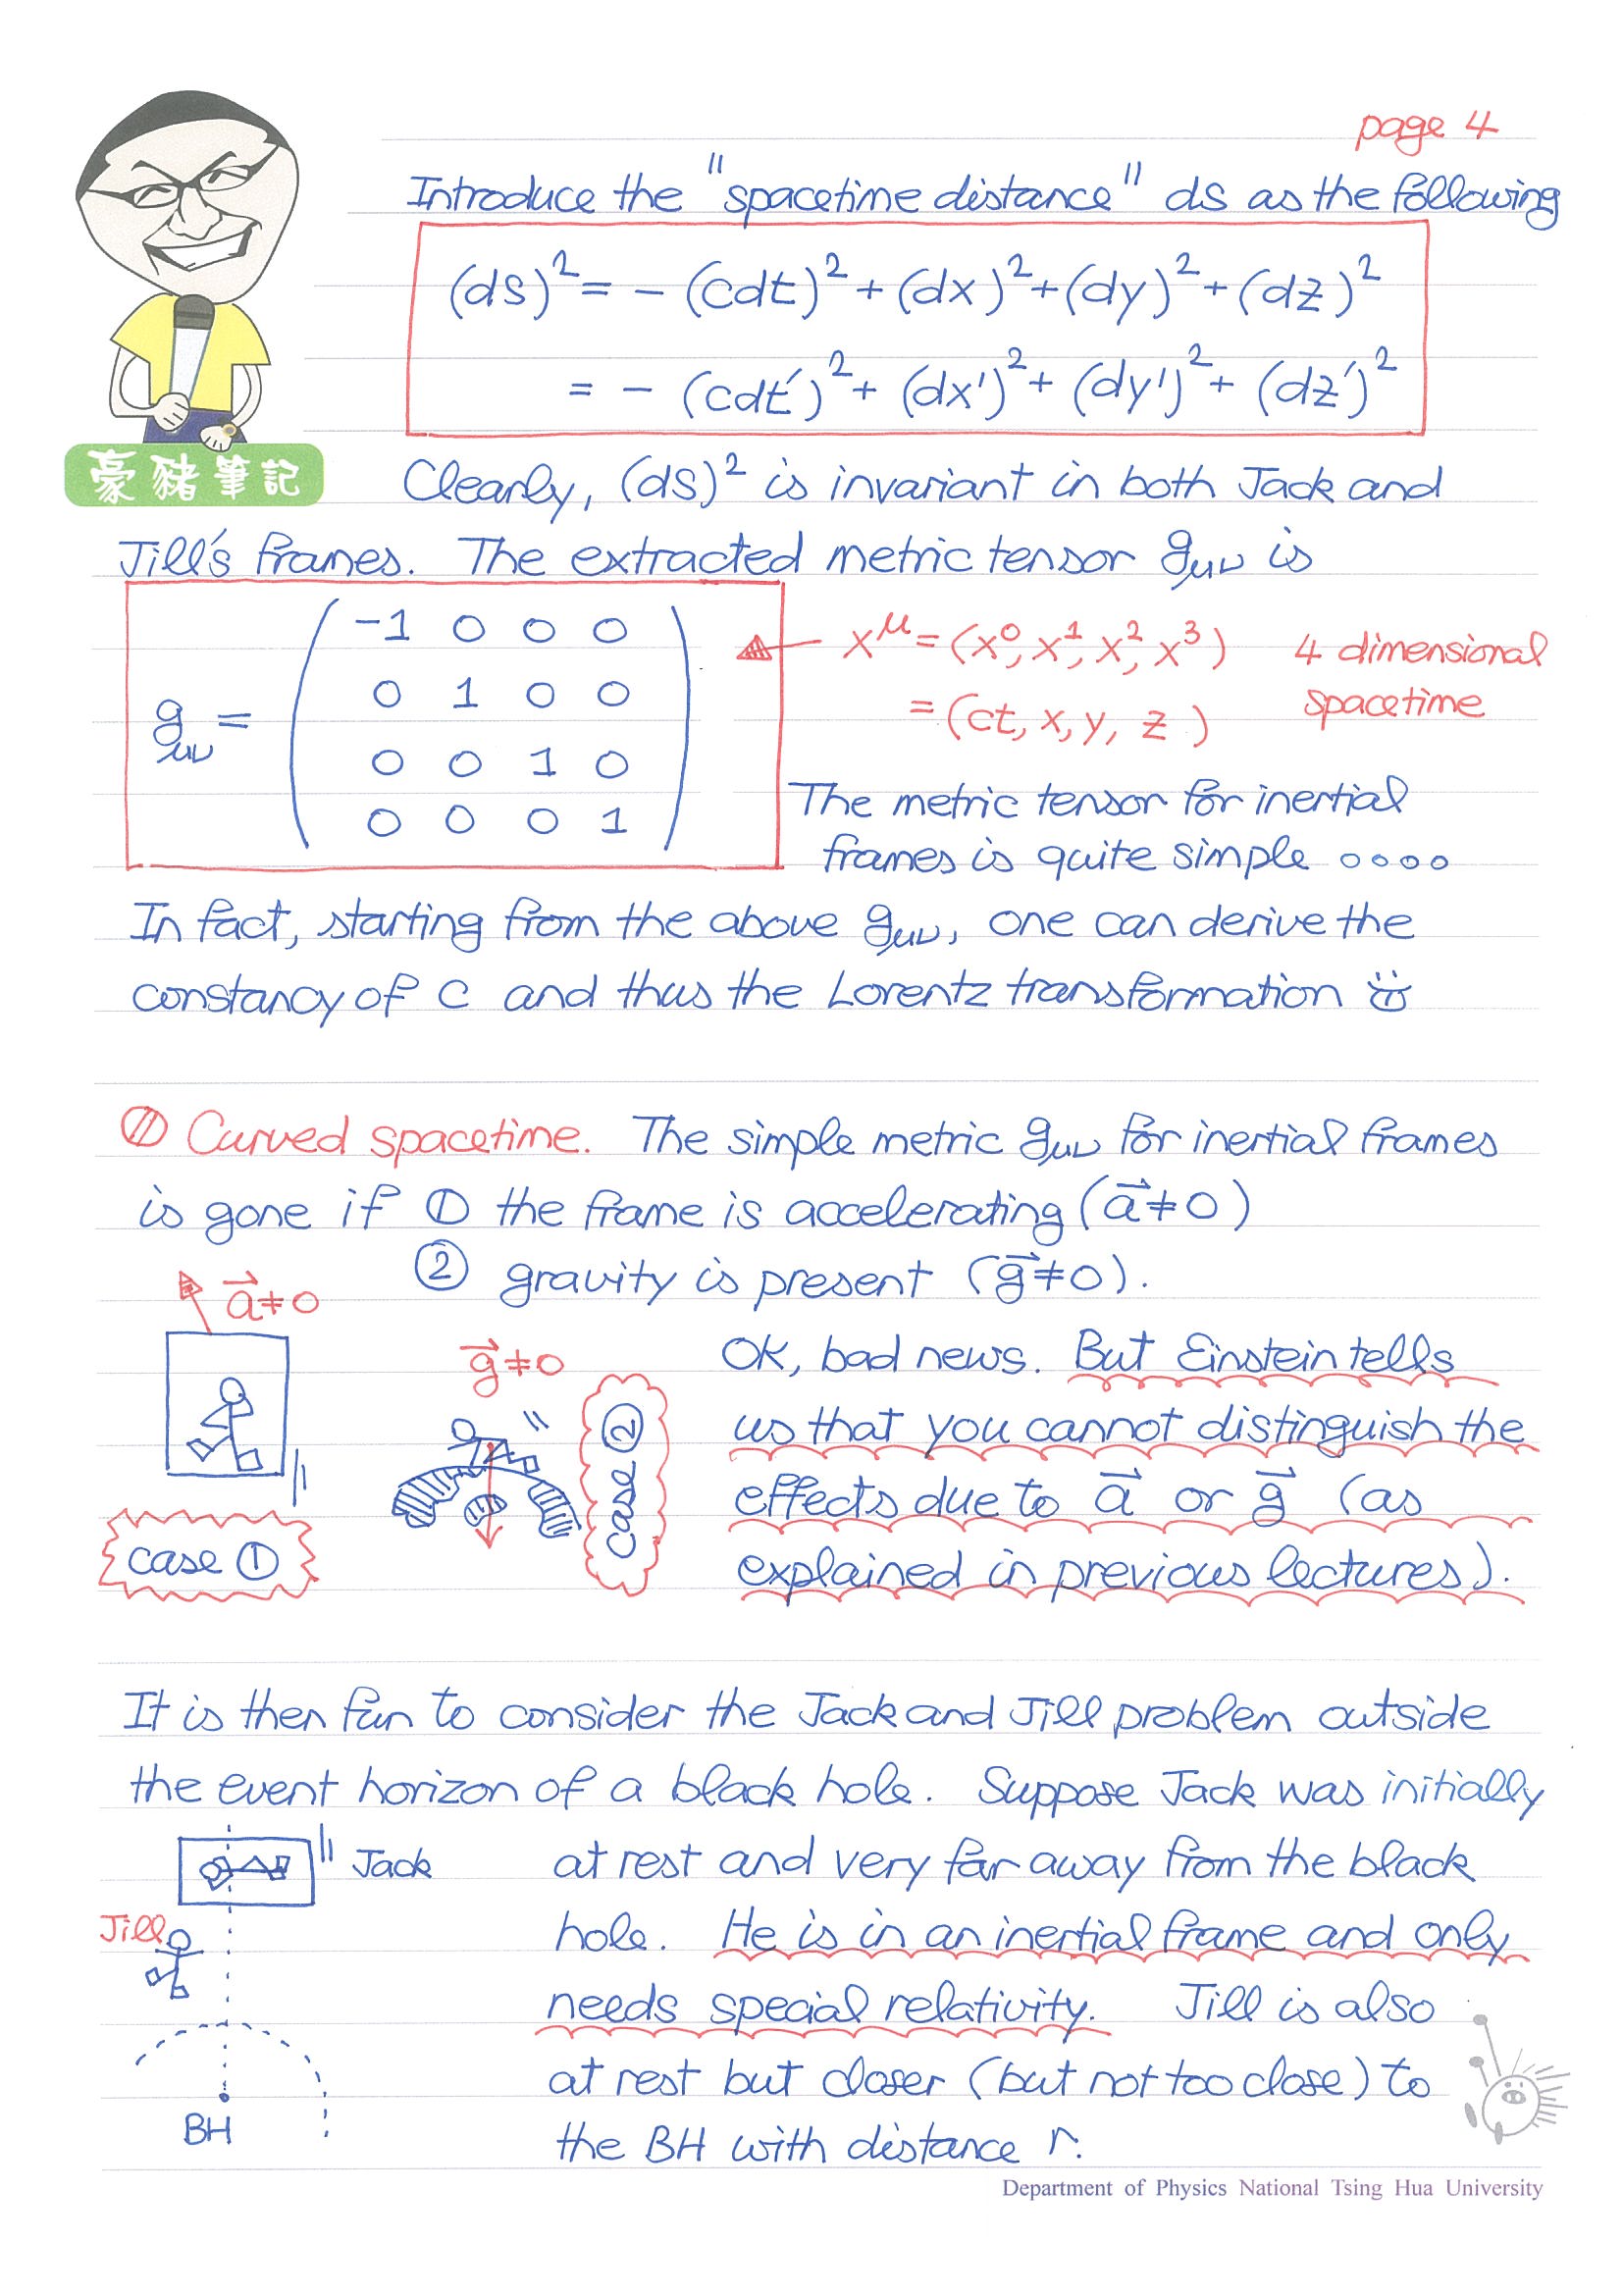 page 4
Introduce the "spacetime distance" ds as the following
(ds)² = - (cdt)² + (dx)² + (dy)² + (dz)²
= - (cdt')² + (dx')² + (dy')² + (dz')²
豪豬筆記
Clearly, (ds)² is invariant in both Jack and
Jill's frames. The extracted metric tensor gμν is
-1 0 0 0
0 1 0 0
gμν =
0 0 1 0
0 0 0 1
x^μ = (x⁰, x¹, x², x³) 4 dimensional
= (ct, x, y, z) spacetime
The metric tensor for inertial
frames is quite simple ∘∘∘∘
In fact, starting from the above gμν, one can derive the
constancy of c and thus the Lorentz transformation
Curved spacetime. The simple metric gμν for inertial frames
is gone if ① the frame is accelerating (a⃗≠0)
② gravity is present (g⃗≠0).
a⃗≠0
g⃗≠0
case ①
case ②
OK, bad news. But Einstein tells
us that you cannot distinguish the
effects due to a⃗ or g⃗ (as
explained in previous lectures).
It is then fun to consider the Jack and Jill problem outside
the event horizon of a black hole. Suppose Jack was initially
Jack
at rest and very far away from the black
Jill
hole. He is in an inertial frame and only
needs special relativity. Jill is also
at rest but closer (but not too close) to
BH
the BH with distance r.
Department of Physics National Tsing Hua University